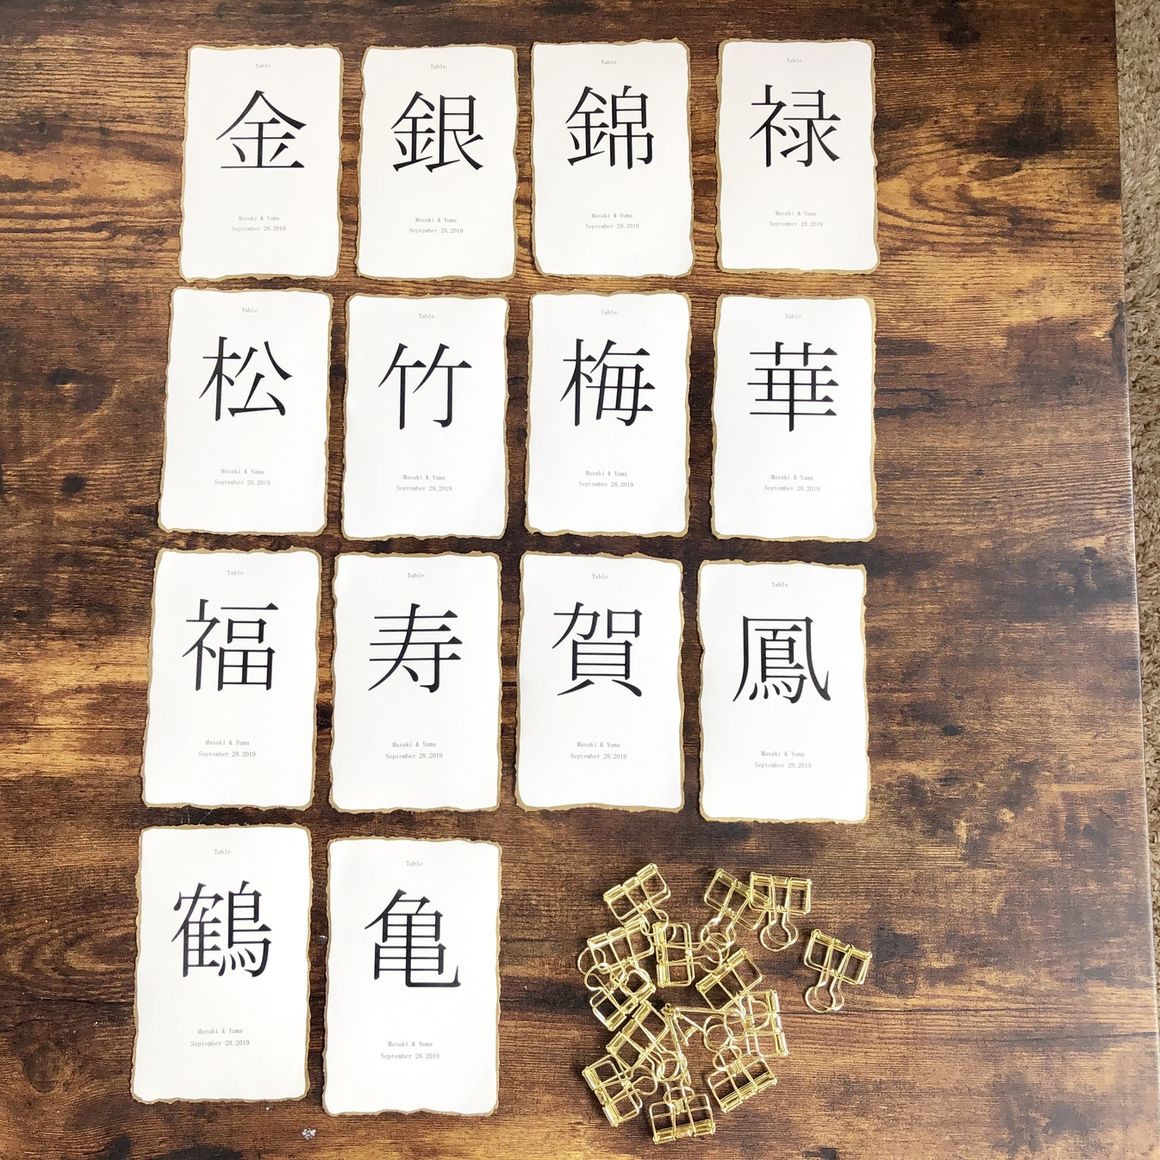 Table
金
Masaki & Yuma
September 28.2019
Table
銀
Masaki & Yuma
September 28.2019
Table
錦
Masaki & Yuma
September 28.2019
Table
禄
Masaki & Yuma
September 28.2019
Table
松
Masaki & Yuma
September 28.2019
Table
竹
Masaki & Yuma
September 28.2019
Table
梅
Masaki & Yuma
September 28.2019
Table
華
Masaki & Yuma
September 28.2019
Table
福
Masaki & Yuma
September 28.2019
Table
寿
Masaki & Yuma
September 28.2019
Table
賀
Masaki & Yuma
September 28.2019
Table
鳳
Masaki & Yuma
September 28.2019
Table
鶴
Masaki & Yuma
September 28.2019
Table
亀
Masaki & Yuma
September 28.2019